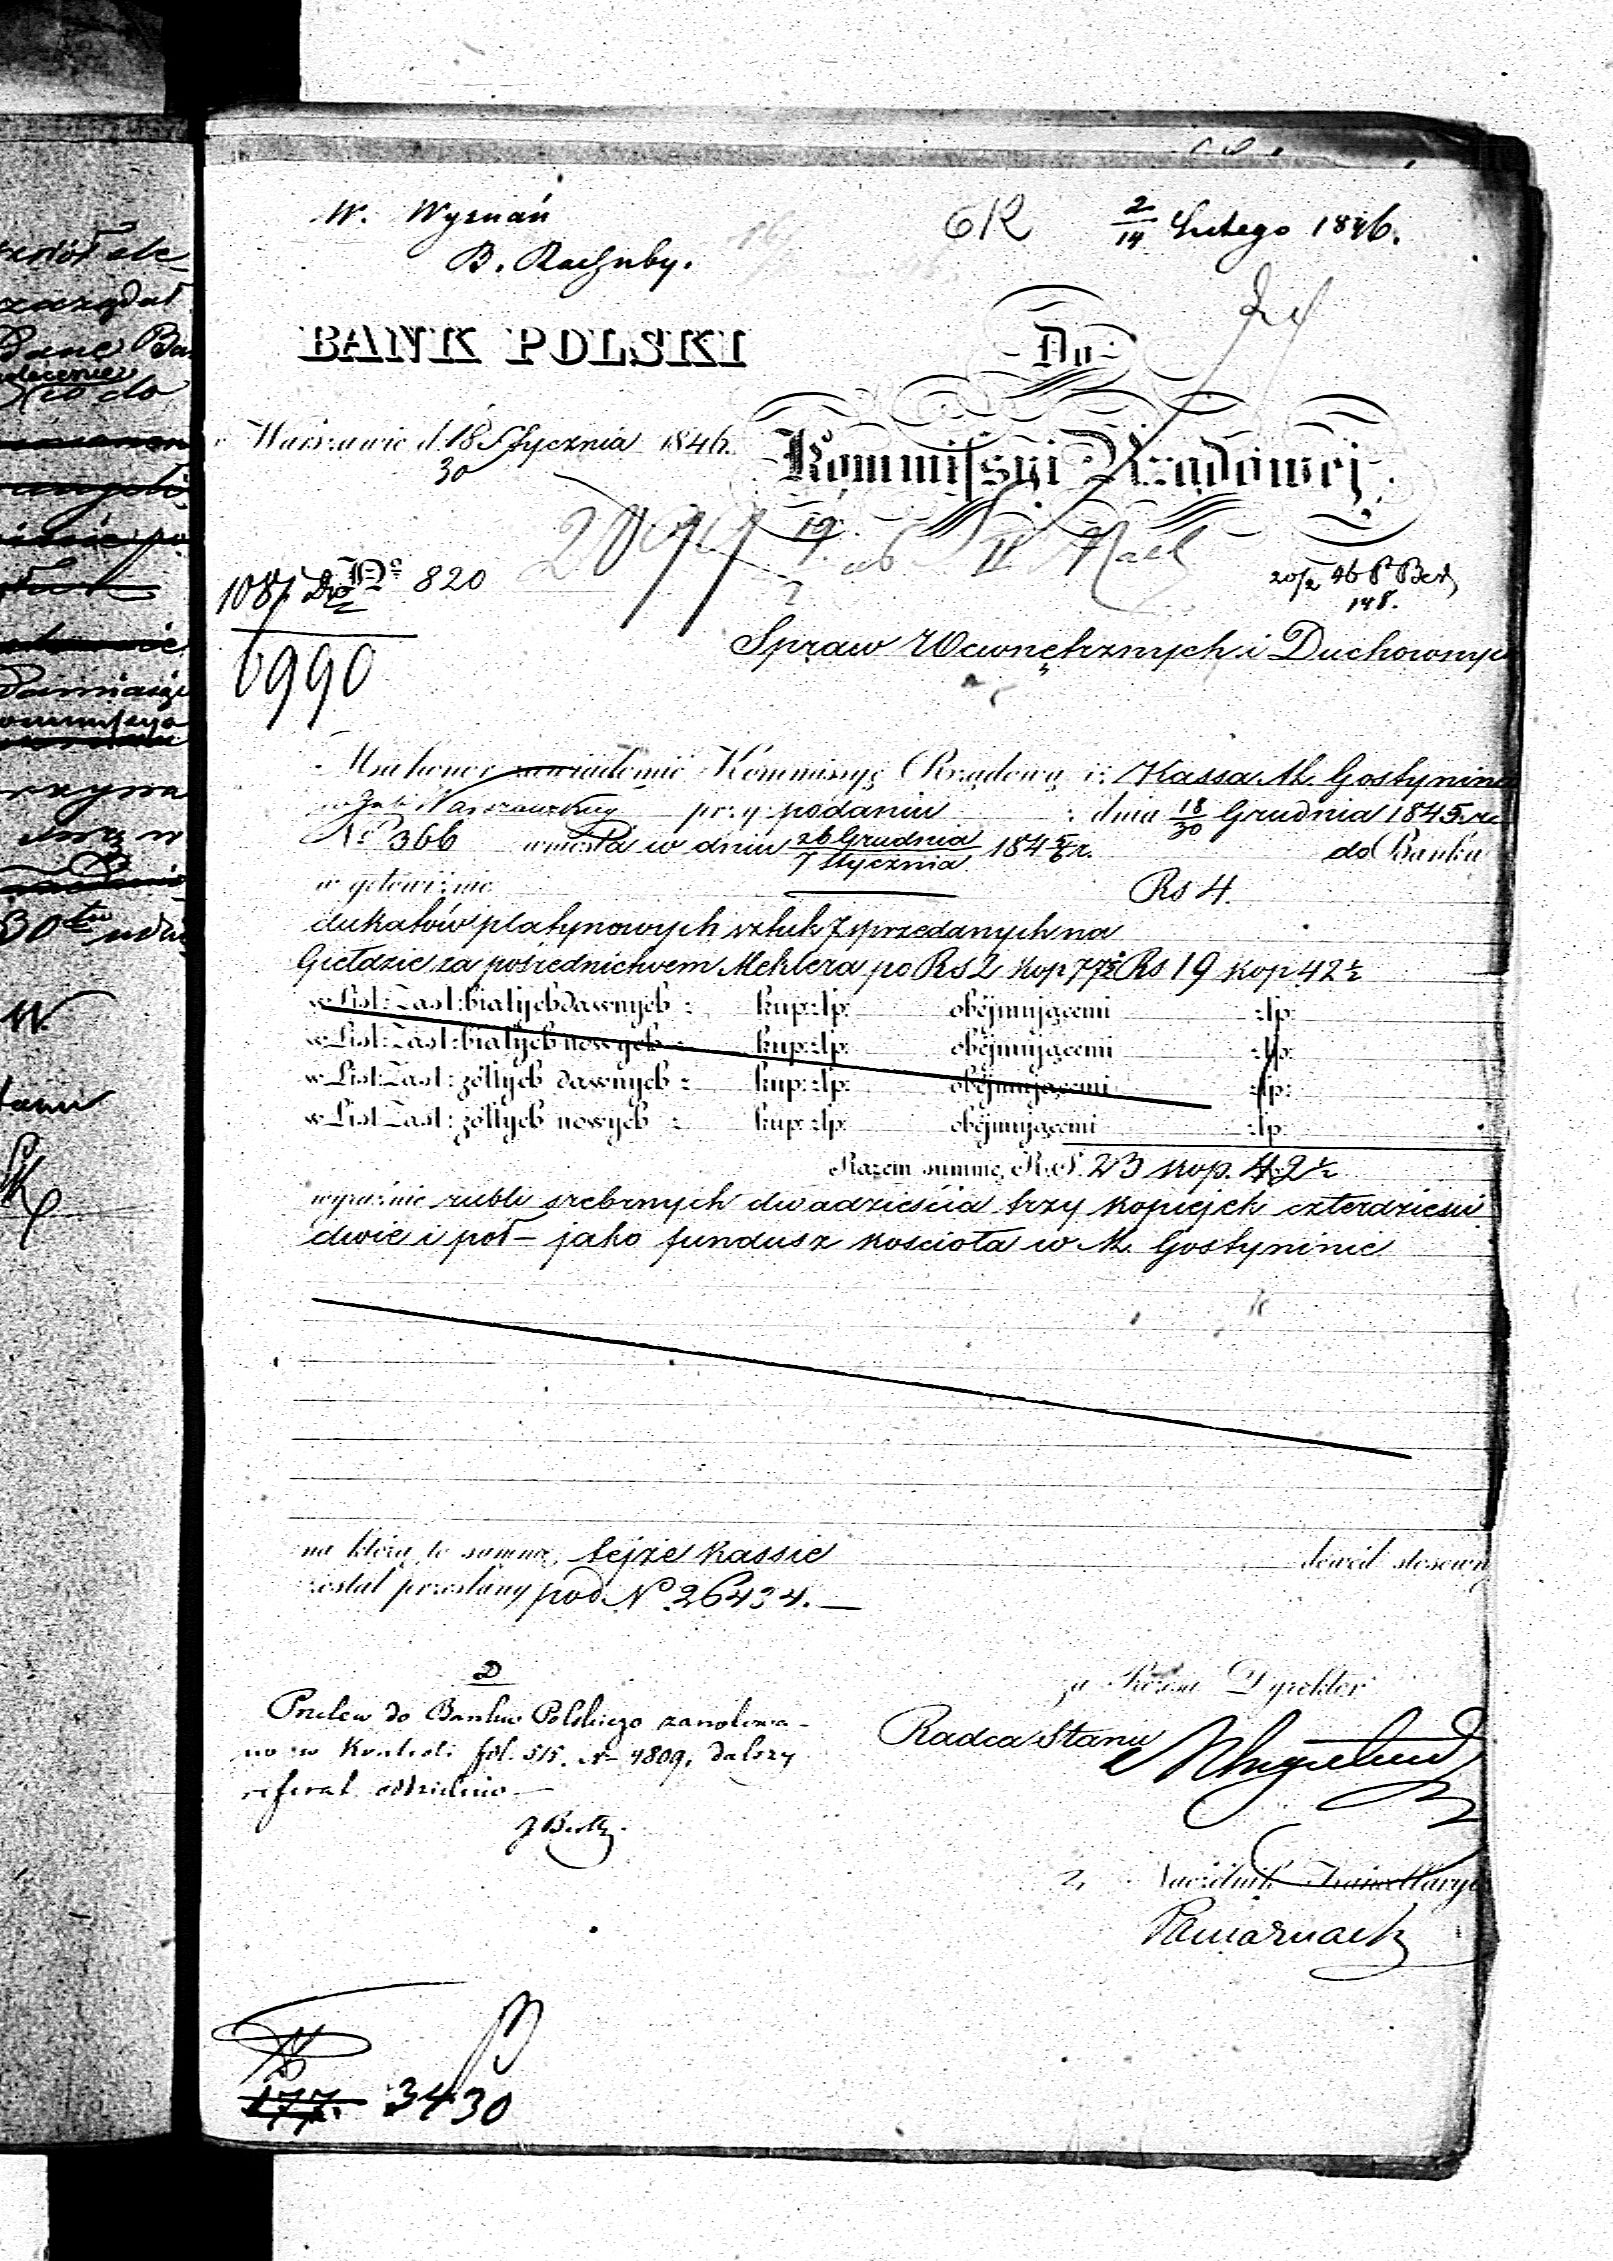 W. Wyznań
B. Rachuby.
2/14 Lutego 1846.
BANK POLSKI
Do
Kommissyi Rządowej
w Warszawie d. 18/30 Stycznia 1846.
No 820
2099
20/2 46
148.
6990
Spraw Wewnętrznych i Duchownych
Ma honor zawiadomić Kommissyę Rządową iż Kassa M. Gostynina
przy podaniu z dnia 18/30 Grudnia 1845 r.
No 366 wniosła w dniu 26 Grudnia/7 Stycznia 1845/6 r. do Banku
w gotowiźnie Rs 4.
dukatów platynowych sztuk 7 sprzedanych na
Giełdzie za pośrednictwem Mehlera po Rs 2 kop 77½ Rs 19 kop 42½
w List: Zast: białych dawnych : kup: złp: obejmującemi złp:
w List: Zast: białych nowych : kup: złp: obejmującemi złp:
w List: Zast: żółtych dawnych : kup: złp: obejmującemi złp:
w List: Zast: żółtych nowych : kup: złp: obejmującemi złp:
Razem summę R.S. 23 kop. 42½
wyraźnie rubli srebrnych dwadzieścia trzy kopiejek czterdzieści
dwie i pół – jako fundusz kościoła w M. Gostyninie
na którą to summę tejże kassie dowód stosowny
został przesłany pod No 26434. —
Przelew do Banku Polskiego zanotowa-
no w Kontroli fol. 515. No 4809, dalszy
referat oddzielnie —
za Prezesa Dyrektor
Radca Stanu
Naczelnik Kancellaryi
177. 3430